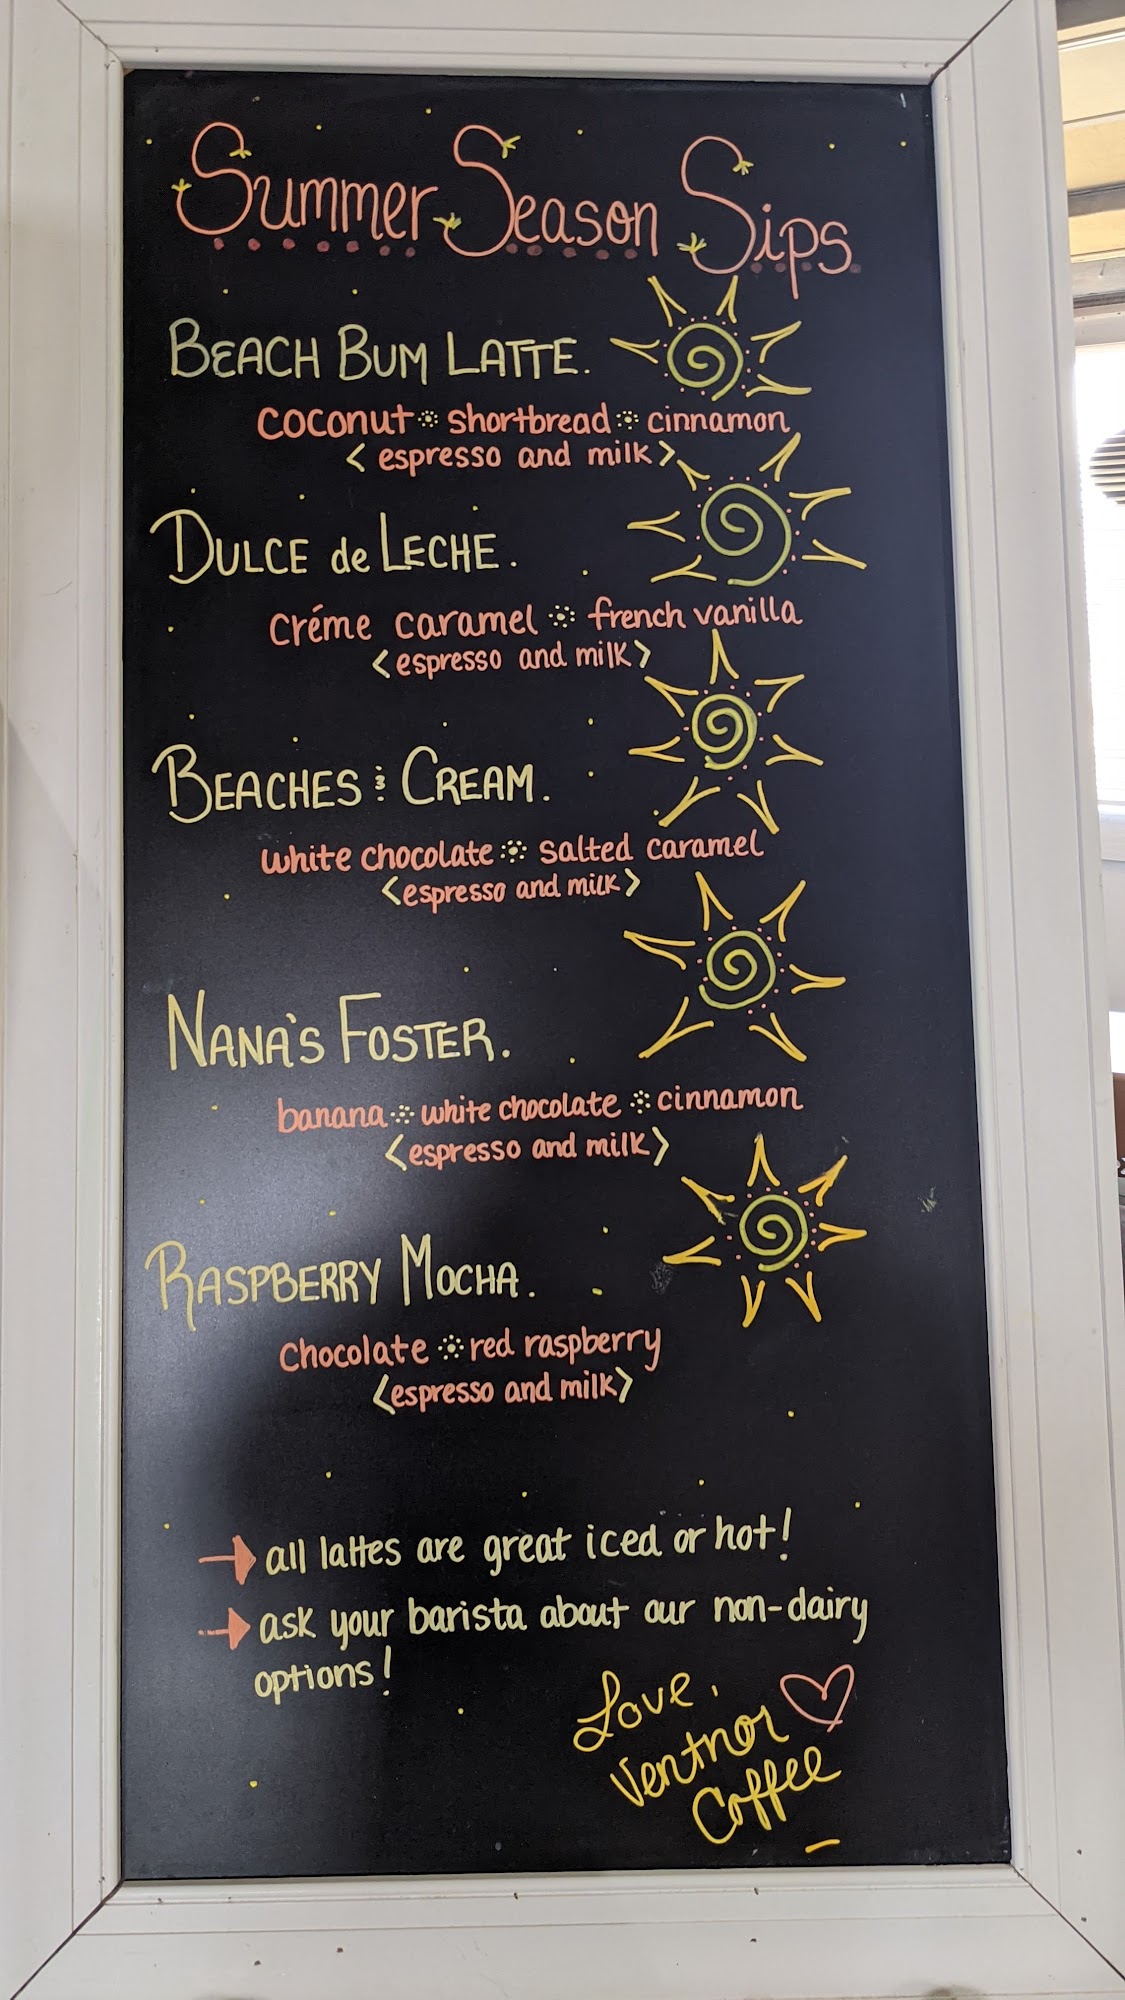 Summer Season Sips
BEACH BUM LATTE.
coconut shortbread cinnamon
< espresso and milk >
DULCE de LECHE.
créme caramel french vanilla
<espresso and milk>
BEACHES & CREAM.
white chocolate salted caramel
<espresso and milk>
NANA'S FOSTER.
banana white chocolate cinnamon
<espresso and milk>
RASPBERRY MOCHA.
chocolate red raspberry
<espresso and milk>
→ all lattes are great iced or hot!
→ ask your barista about our non-dairy
options!
Love,
Ventnor
Coffee